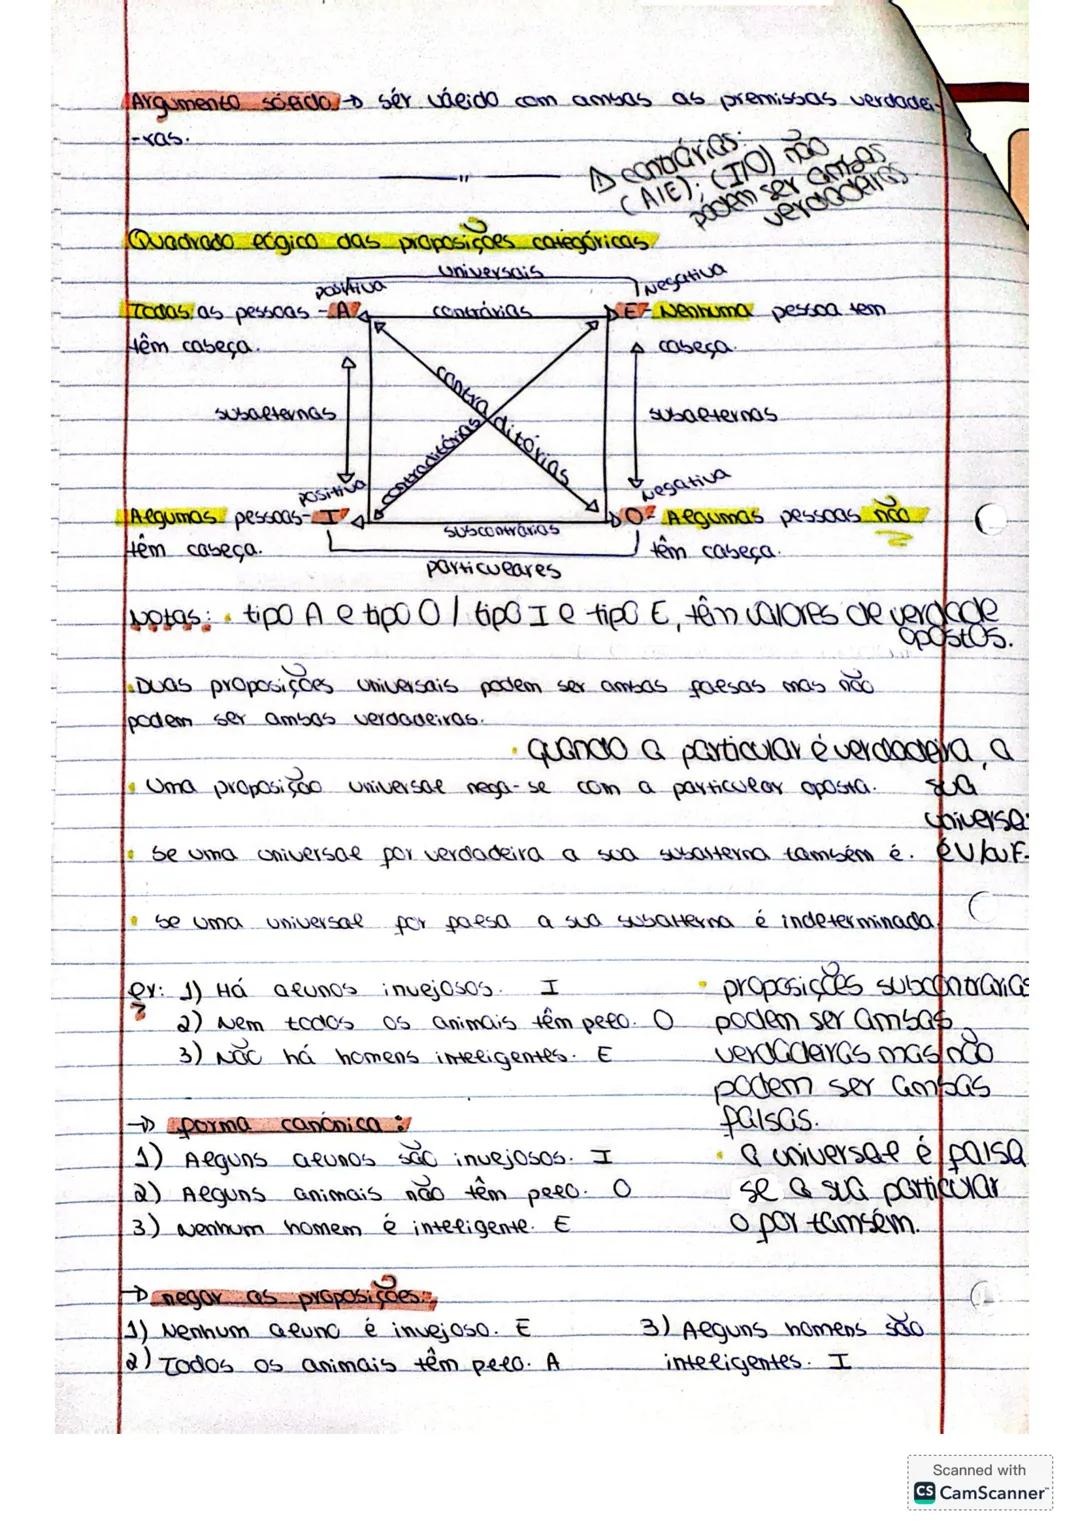 Argumento sólido → ser válido com ambas as premissas verdadei-
-ras.
→ contrárias:
(A/E); (I/O) não
podem ser ambas
verdadeiras.
Quadrado lógico das proposições categóricas
universais
positiva
Negativa
Todas as pessoas - A
contrárias
E - Nenhuma pessoa tem
têm cabeça.
cabeça.
subalternas
contraditórias
contraditórias
subalternas
positiva
Negativa
Algumas pessoas - I
subcontrárias
O - Algumas pessoas não
têm cabeça.
têm cabeça.
particulares
Notas: • tipo A e tipo O / tipo I e tipo E, têm valores de verdade
opostos.
• Duas proposições universais podem ser ambas falsas mas não
podem ser ambas verdadeiras.
• quando a particular é verdadeira, a
sua
universal
é V/ou F.
• Uma proposição universal nega-se com a particular oposta.
• Se uma universal for verdadeira a sua subalterna também é.
• Se uma universal for falsa a sua subalterna é indeterminada.
ex: 1) Há alunos invejosos. I
2) Nem todos os animais têm pelo. O
3) Não há homens inteligentes. E
• proposições subcontrárias
podem ser ambas
verdadeiras mas não
podem ser ambas
falsas.
• a universal é falsa
se a sua particular
o for também.
→ forma canónica:
1) Alguns alunos são invejosos. I
2) Alguns animais não têm pelo. O
3) Nenhum homem é inteligente. E
→ negar as proposições:
1) Nenhum aluno é invejoso. E
2) Todos os animais têm pelo. A
3) Alguns homens são
inteligentes. I
Scanned with
CS CamScanner